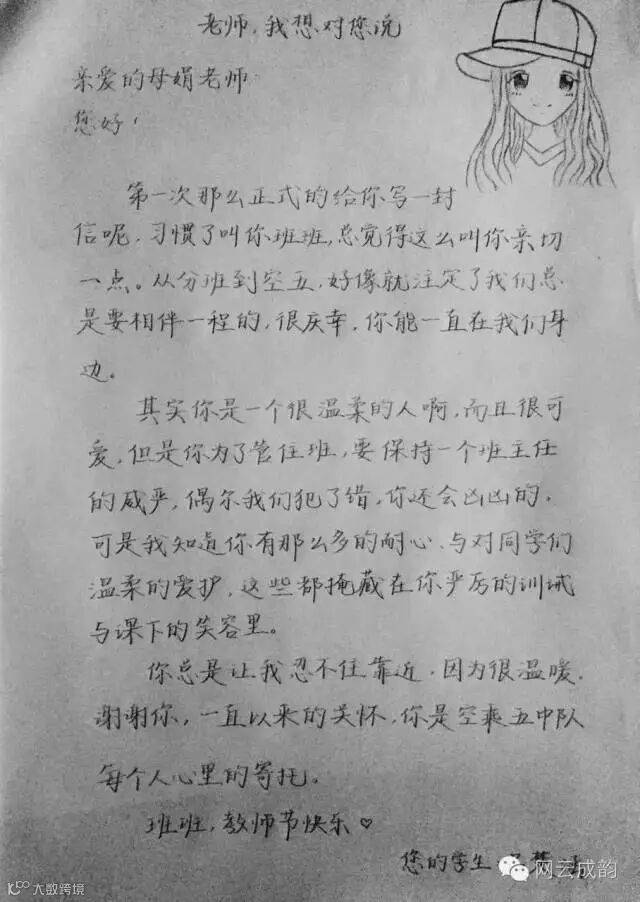 老师，我想对您说
亲爱的母娟老师
您好！
第一次那么正式的给你写一封
信呢，习惯了叫你班班，总觉得这么叫你亲切
一点。从分班到空五，好像就注定了我们总
是要相伴一程的，很庆幸，你能一直在我们身
边。
其实你是一个很温柔的人啊，而且很可
爱，但是你为了管住班，要保持一个班主任
的威严，偶尔我们犯了错，你还会凶凶的，
可是我知道你有那么多的耐心、与对同学们
温柔的爱护，这些都掩藏在你严厉的训诫
与课下的笑容里。
你总是让我忍不住靠近，因为很温暖，
谢谢你，一直以来的关怀，你是空乘五中队
每个人心里的寄托。
班班，教师节快乐♡
您的学生
网云成韵
10100 大数跨境